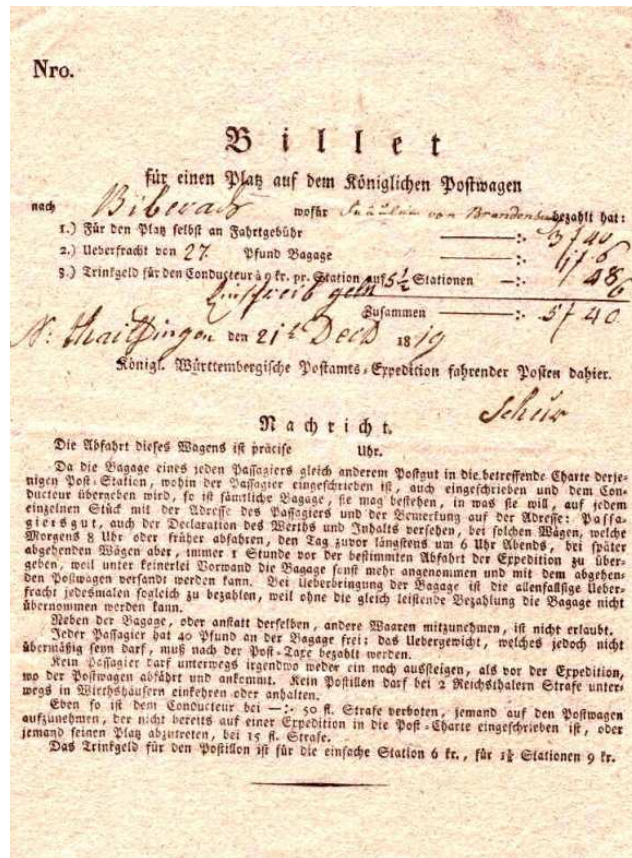 Nro.
Billet
für einen Platz auf dem Königlichen Postwagen
nach Biberach wofür Fräulein von Brandenburg bezahlt hat:
1.) Für den Platz selbst an Fahrtgebühr —:. 3 f 40
2.) Ueberfracht von 27 Pfund Bagage —:. 1 f 6
3.) Trinkgeld für den Conducteur à 9 kr. pr. Station auf 5½ Stationen —:. 48
Einschreib geld 6
Zusammen —:. 5 f 40
den 21t Decb 1819
Königl. Württembergische Postamts-Expedition fahrender Posten dahier.
Nachricht.
Die Abfahrt dieses Wagens ist präcise Uhr.
Da die Bagage eines jeden Passagiers gleich anderem Postgut in die betreffende Charte derje-
nigen Post-Station, wohin der Passagier eingeschrieben ist, auch eingeschrieben und dem Con-
ducteur übergeben wird, so ist sämtliche Bagage, sie mag bestehen, in was sie will, auf jedem
einzelnen Stück mit der Adresse des Passagiers und der Bemerkung auf der Adresse: Passa-
giersgut, auch der Declaration des Werths und Inhalts versehen, bei solchen Wägen, welche
Morgens 8 Uhr oder früher abfahren, den Tag zuvor längstens um 6 Uhr Abends, bei später
abgehenden Wägen aber, immer 1 Stunde vor der bestimmten Abfahrt der Expedition zu über-
geben, weil unter keinerlei Vorwand die Bagage sonst mehr angenommen und mit dem abgehen-
den Postwagen versandt werden kann. Bei Ueberbringung der Bagage ist die allenfallsige Ueber-
fracht jedesmalen sogleich zu bezahlen, weil ohne die gleich leistende Bezahlung die Bagage nicht
übernommen werden kann.
Neben der Bagage, oder anstatt derselben, andere Waaren mitzunehmen, ist nicht erlaubt.
Jeder Passagier hat 40 Pfund an der Bagage frei: das Uebergewicht, welches jedoch nicht
übermäßig seyn darf, muß nach der Post-Taxe bezahlt werden.
Kein Passagier darf unterwegs irgendwo weder ein noch aussteigen, als vor der Expedition,
wo der Postwagen abfährt und ankommt. Kein Postillon darf bei 2 Reichsthalern Strafe unter-
wegs in Wirthshäusern einkehren oder anhalten.
Eben so ist dem Conducteur bei —:. 50 fl. Strafe verboten, jemand auf den Postwagen
aufzunehmen, der nicht bereits auf einer Expedition in die Post-Charte eingeschrieben ist, oder
jemand seinen Platz abzutreten, bei 15 fl. Strafe.
Das Trinkgeld für den Postillon ist für die einfache Station 6 kr., für 1½ Stationen 9 kr.